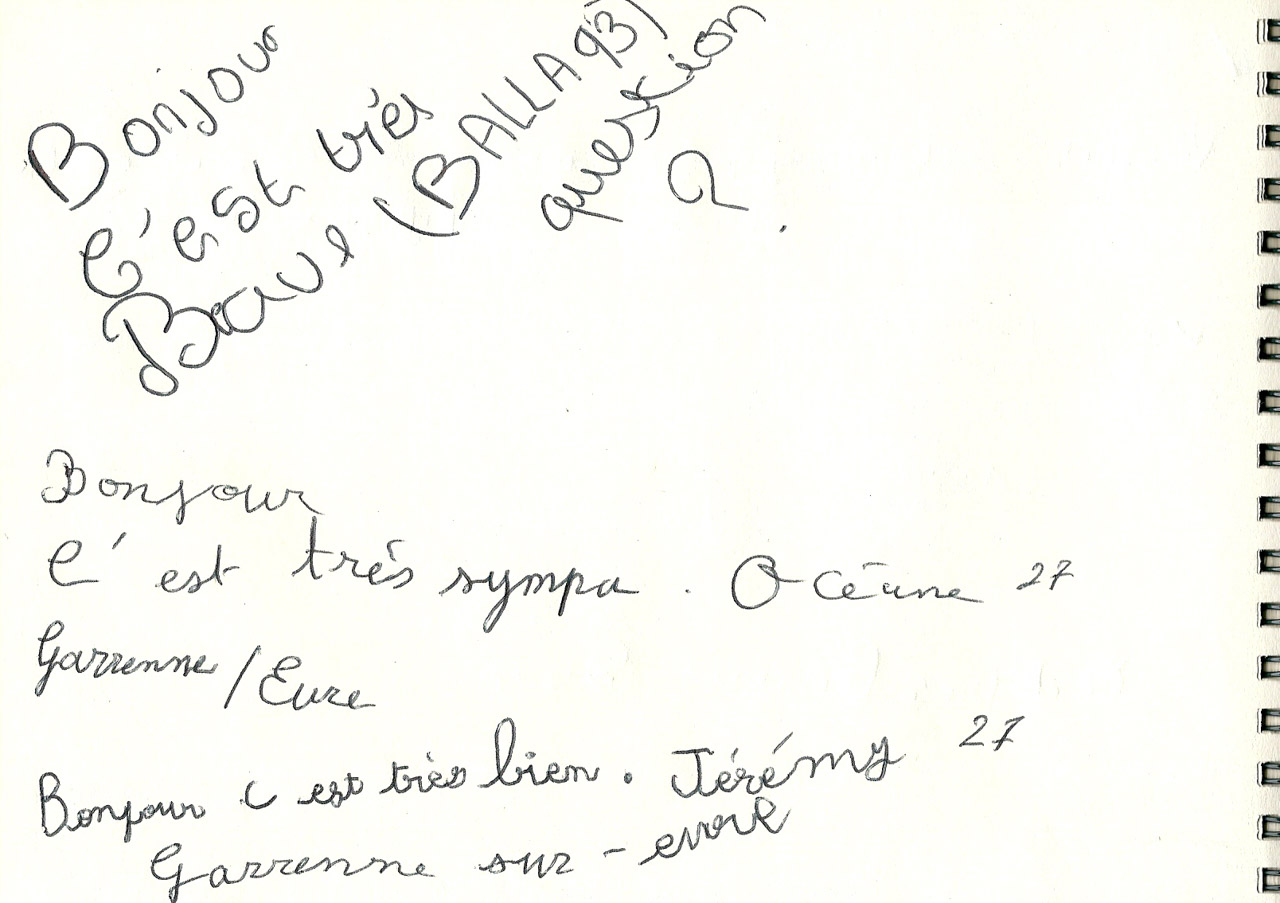 Bonjour
C'est trés
Beau (BALLA 93)
question
?
Bonjour
C'est trés sympa. Océane 27
Garrenne / Eure
Bonjour c est très bien. Jérémy 27
Garrenne sur - eure